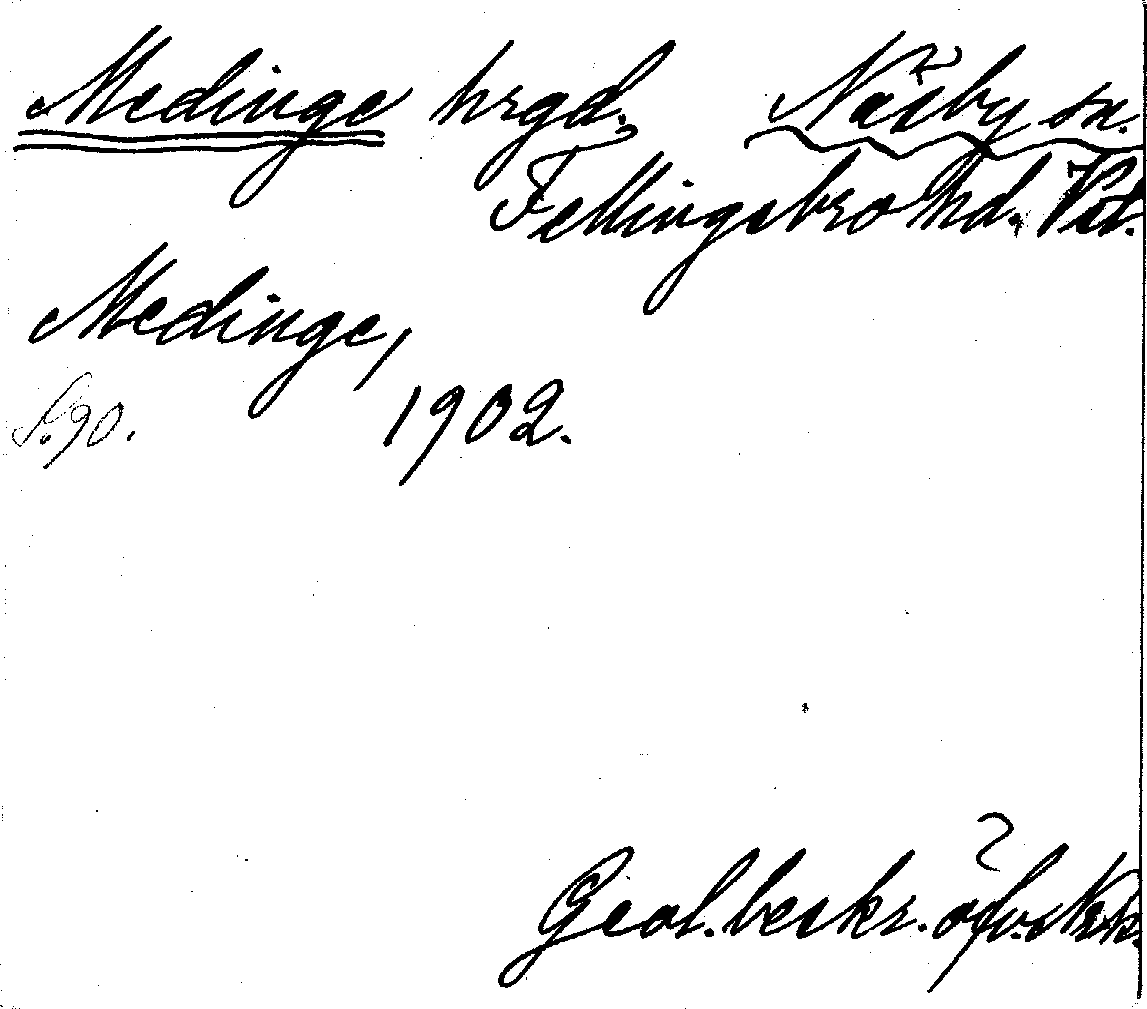 Medinge hrgd. Näsby sn.
Fellingsbro hd. Vstl.
Medinge,
S.90. 1902.
Geol. beskr. öfv. Nrk.